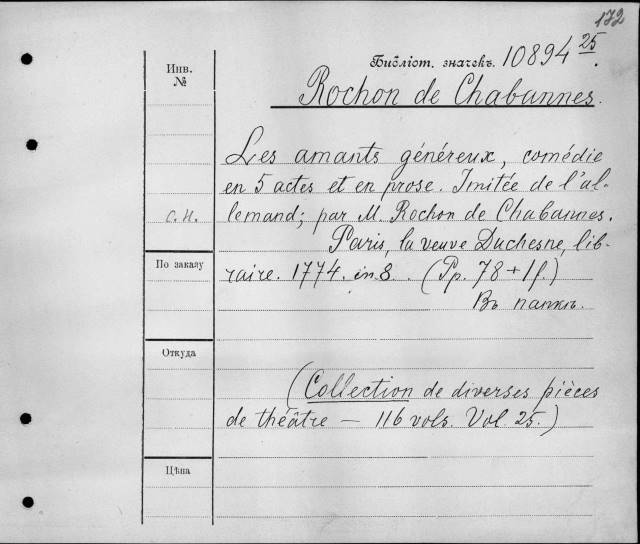 172
Библіот. значекъ. 10894 25.
Rochon de Chabannes.
Инв.
№
Les amants généreux, comédie
en 5 actes et en prose. Imitée de l'al-
lemand; par M. Rochon de Chabannes.
с.н.
Paris, la veuve Duchesne, lib-
raire. 1774. in 8. (Pp. 78 + 1f.)
Въ папкѣ.
По заказу
Откуда
(Collection de diverses pièces
de théâtre — 116 vols. Vol. 25.)
Цѣна